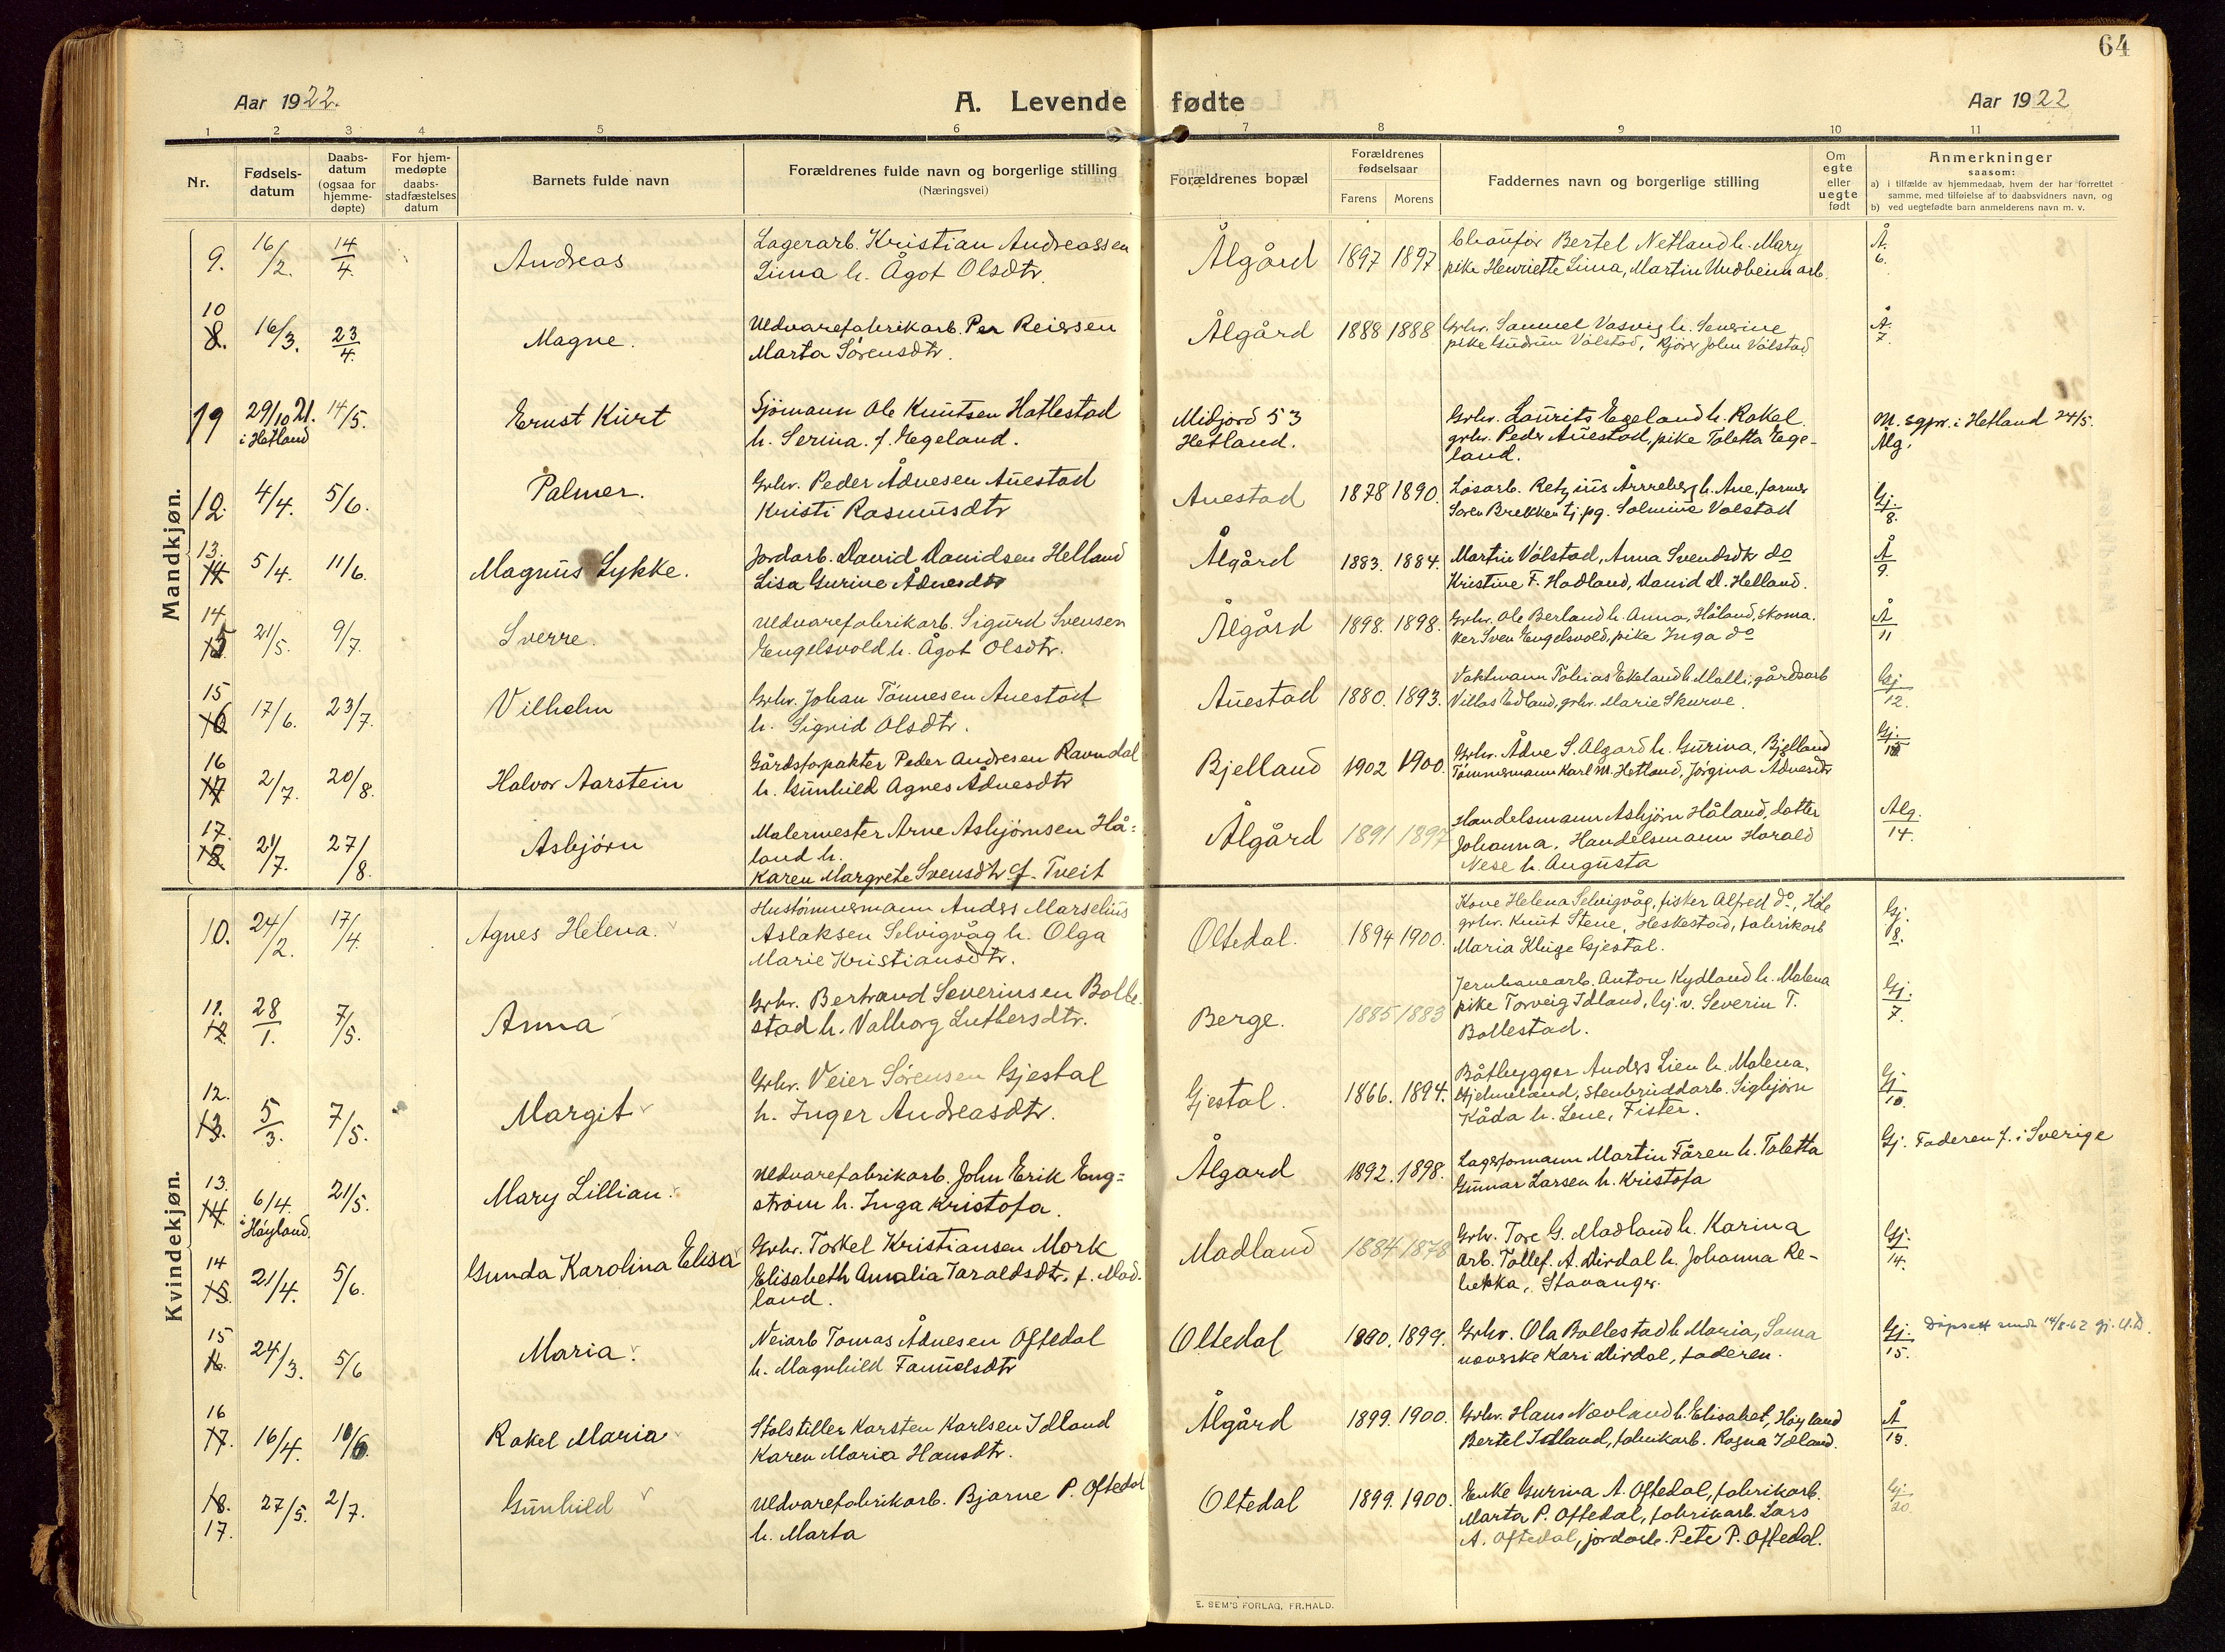 64
Aar 1922.
A. Levende fødte
Aar 1922
1 2 3 4 5 6 7 8 9 10 11
Nr.
Fødsels-
datum
Daabs-
datum
(ogsaa for
hjemme-
døpte)
For hjem-
medøpte
daabs-
stadfæstelses
datum
Barnets fulde navn
Forældrenes fulde navn og borgerlige stilling
(Næringsvei)
Forældrenes bopæl
Forældrenes
fødselsaar
Farens Morens
Faddernes navn og borgerlige stilling
Om
egte
eller
uegte
født
Anmerkninger
saasom:
a) i tilfælde av hjemmedaab, hvem der har forrettet
samme, med tilføielse af to daabsvidners navn, og
b) ved uegtefødte barn anmelderens navn m. v.
Mandkjøn.
9. 16/2. 14/4. Andreas
Lagerarb. Kristian Andreassen
Lima h. Ågot Olsdtr.
Ålgård 1897 1897
Chaufør Bertel Netland h. Mary
pike Henriette Lima, Martin Undheim arb.
Å. 6.
10 8. 16/3. 23/4. Magne.
Uldvarefabrikarb. Per Reiersen
Marta Sørensdtr.
Ålgård 1888 1888
Grbr. Samuel Vasvig h. Severine
pike Gudrun Vålstad, kjører John Vålstad
Å. 7.
19 29/10 21. 14/5. Ernst Kurt
i Hetland
Sjømann Ole Knutsen Hatlestad
h. Serina. f. Egeland.
Midjord 53
Hetland.
Grbr. Laurits Egeland h. Rakel
grbr. Peder Auestad, pike Toletta Ege-
land.
M. sgpr. i Hetland 24/5.
Ålg.
12. 4/4. 5/6. Palmer.
Grbr. Peder Ådnesen Auestad
Kristi Rasmusdtr
Auestad 1878 1890.
Løsarb. Retzius Årreberg h. Ane, farmer
Søren Brekken tj. pg. Salmine Valestad
Gj. 8.
13. 14 5/4. 11/6. Magnus Lykke.
Jordarb. David Davidsen Helland
Lisa Gurine Ådnesdtr
Ålgård 1883. 1884.
Martin Vålstad, Anna Svendsdtr do
Kristine F. Hadland, David D. Helland.
Å 9.
14 15 21/5. 9/7. Sverre.
Uldvarefabrikarb. Sigurd Svensen
Engelsvold h. Ågot Olsdtr.
Ålgård 1898. 1898.
Grbr. Ole Berland h. Anna, Håland, skoma.
ker Sven Engelsvold, pike Inga do
Å 11
15 16 17/6. 23/7. Vilhelm
Grbr. Johan Tønnesen Auestad
h. Sigrid Olsdtr.
Auestad 1880. 1893.
Vaktmann Tobias Ekeland h. Malli; gårdsarb
Villas Edland, grbr. Marie Skurve.
Gj 12.
16 17 2/7. 20/8. Halvor Aarstein
Gårdsforpakter Peder Andresen Ravndal
h. Gunhild Agnes Ådnesdtr
Bjelland 1902 1900.
Grbr. Ådne S. Ålgard h. Gurina, Bjelland
Tømmermann Karl M. Hetland, Jørgina Ådnesdtr
Gj.
17. 18 21/7. 27/8. Asbjørn
Malermester Arne Asbjørnsen Hå-
land h.
Karen Margrete Svensdtr f. Tveit
Ålgård 1891 1897
Handelsmann Asbjørn Håland, datter
Johanna, Handelsmann Harald
Nese h. Augusta
Alg. 14.
Kvindekjøn.
10. 24/2. 17/4. Agnes Helena.
Hustømmermann Anders Marselius
Aslaksen Selvigvåg h. Olga
Marie Kristiansdtr.
Oltedal. 1894 1900.
Kone Helena Selvigvåg, fisker Alfred do, Høle
grbr. Knut Stene, Heskestad, fabrikarb
Maria Kluge Gjestal.
Gj. 8.
11. 12 28/1. 7/5. Anna
Grbr. Bertrand Severinsen Bolle-
stad h. Valborg Luthersdtr.
Berge. 1885 1883
Jernbanearb. Anton Kydland h. Malena
pike Torveig Idland, bj. v. Severin T.
Bollestad.
Gj. 7.
12. 13. 5/3. 7/5. Margit
Grbr. Veier Sørensen Gjestal
h. Inger Andreasdtr.
Gjestal. 1866. 1894.
Båtbygger Anders Lien h. Malena,
Hjelmeland, stenbruddarb. Sigbjørn
Kåda h. Lene, Fister.
Gj 10.
13. 14. 6/4. 21/5. Mary Lillian.
i Høyland.
Uldvarefabrikarb. John Erik Eng-
strøm h. Inga Kristofa.
Ålgard 1892. 1898.
Lagerformann Martin Fåren h. Taletta
Gunnar Larsen h. Kristofa
Gj. Faderen f. i Sverige
14 15. 21/4. 5/6. Gunda Karolina Elisa
Grbr. Torkel Kristiansen Mork
Elisabeth Amalia Taraldsdtr. f. Mad-
land.
Madland 1884 1878
Grbr. Tore G. Madland h. Karina
Arb. Tollef. A. Dirdal h. Johanna Re-
bekka, Stavanger.
Gj. 14.
15 16. 24/3. 5/6 Maria.
Veiarb Tomas Ådnesen Oftedal
h. Magnhild Samuelsdtr
Oltedal 1890. 1899.
Grbr. Ola Bollestad h. Maria, Sauna
uoverske Kari Dirdal, faderen.
Gj. 15. Dåpsatt sendt 14/8-62 Gj. U.D.
16 17. 16/4. 10/6. Rakel Maria
Stolstiller Karsten Karlsen Idland
Karen Maria Hansdtr.
Ålgård 1899. 1900.
Grbr. Hans Nævland h. Elisabet, Høyland
Bertel Idland, fabrikarb. Ragna Idland.
Å 13.
18. 17. 27/5. 2/7. Gunhild
Uldvarefabrikarb. Bjarne P. Oftedal
h. Marta
Oltedal 1899. 1900.
Enke Gurina A. Oftedal, fabrikarb.
Marta P. Oftedal, fabrikarb. Lars
A. Oftedal, jordarb. Pete P. Oftedal.
Gj. 20.
E. SEM'S FORLAG, FR.HALD.